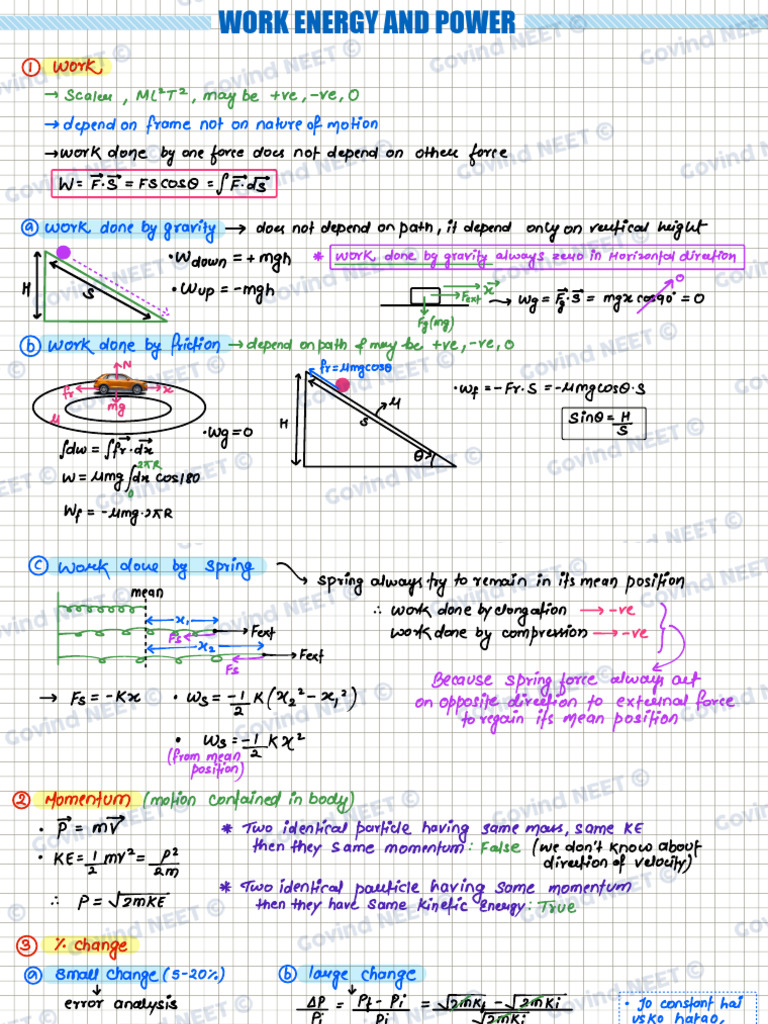 WORK ENERGY AND POWER
① Work
→ Scaler, ML²T², may be +ve, -ve, 0
→ depend on frame not on nature of motion
→ work done by one force does not depend on other force
W = F⃗·S⃗ = FS cosθ = ∫F⃗·ds⃗
ⓐ Work done by gravity → does not depend on path, it depend only on vertical height
• W down = +mgh
* Work done by gravity always zero in Horizontal direction
• W up = -mgh
H
S
Fext
x⃗
Fg(mg)
→ Wg = F⃗g·S⃗ = mgx cos90° = 0
0
ⓑ Work done by friction → depend on path & may be +ve, -ve, 0
N
fr
x
mg
μ
• Wg = 0
fr = μmgcosθ
μ
H
S
θ
• Wf = -Fr·S = -μmgcosθ·S
Sinθ = H/S
∫dw = ∫fr⃗·dx⃗
W = μmg ∫₀^2πR dx cos180
Wf = -μmg·2πR
ⓒ Work done by spring → spring always try to remain in its mean position
mean
x₁
Fs
Fext
x₂
Fs
Fext
∴ work done by elongation → -ve
work done by compression → -ve
Because spring force always act
on opposite direction to external force
to regain its mean position
→ Fs = -Kx • Ws = -1/2 K(x₂² - x₁²)
• Ws = -1/2 Kx²
(from mean
position)
② Momentum (motion contained in body)
• P⃗ = mV⃗
• KE = 1/2 mv² = P²/2m
∴ P = √2mKE
* Two identical particle having same mass, same KE
then they same momentum : False (we don't know about
direction of velocity)
* Two identical particle having same momentum
then they have same kinetic Energy : True
③ % change
ⓐ small change (5-20%)
↓
error analysis
ⓑ large change
↓
ΔP/Pi = Pf - Pi/Pi = √2mKf - √2mKi/√2mKi
• Jo constant hai
usko hatao,
Govind NEET ©